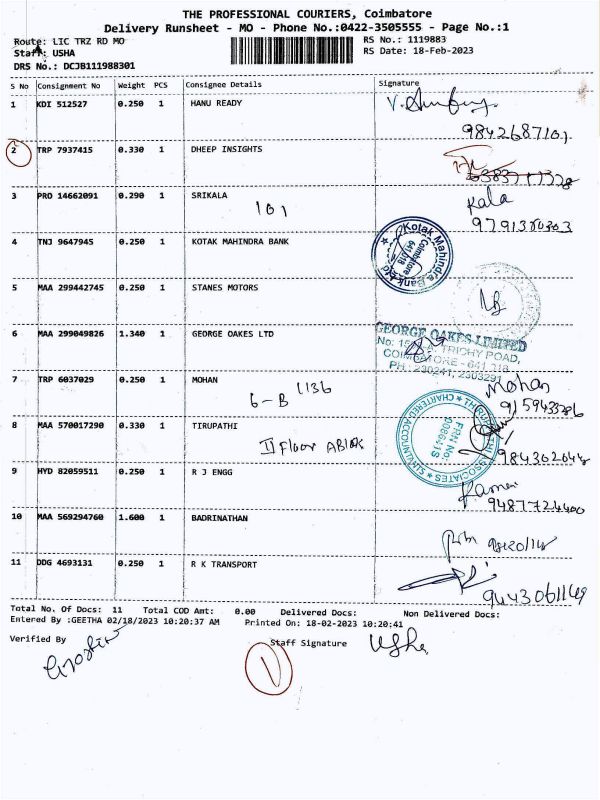 THE PROFESSIONAL COURIERS, Coimbatore
Delivery Runsheet - MO - Phone No.:0422-3505555 - Page No.:1
Route: LIC TRZ RD MO RS No.: 1119883
Staff: USHA RS Date: 18-Feb-2023
DRS No.: DCJB111988301
S No Consignment No Weight PCS Consignee Details Signature
1 KDI 512527 0.250 1 HANU READY
9842687101
2 TRP 7937415 0.330 1 DHEEP INSIGHTS
3 PRO 14662091 0.290 1 SRIKALA Kala
101
4 TNJ 9647945 0.250 1 KOTAK MAHINDRA BANK Kotak Mahindra Bank Ltd Coimbatore 641 018
5 MAA 299442745 0.250 1 STANES MOTORS
6 MAA 299049826 1.340 1 GEORGE OAKES LTD GEORGE OAKES LIMITED
TRICHY ROAD,
COIMBATORE - 641 218
PH : 230241, 2303291
7 TRP 6037029 0.250 1 MOHAN Mohan
6-B 1136
8 MAA 570017290 0.330 1 TIRUPATHI CHARTERED ACCOUNTANTS
II Floor A Block
9 HYD 82059511 0.250 1 R J ENGG
9487724400
10 MAA 569294760 1.600 1 BADRINATHAN
11 DDG 4693131 0.250 1 R K TRANSPORT
Total No. Of Docs: 11 Total COD Amt: 0.00 Delivered Docs: Non Delivered Docs:
Entered By :GEETHA 02/18/2023 10:20:37 AM Printed On: 18-02-2023 10:20:41
Verified By Staff Signature Usha